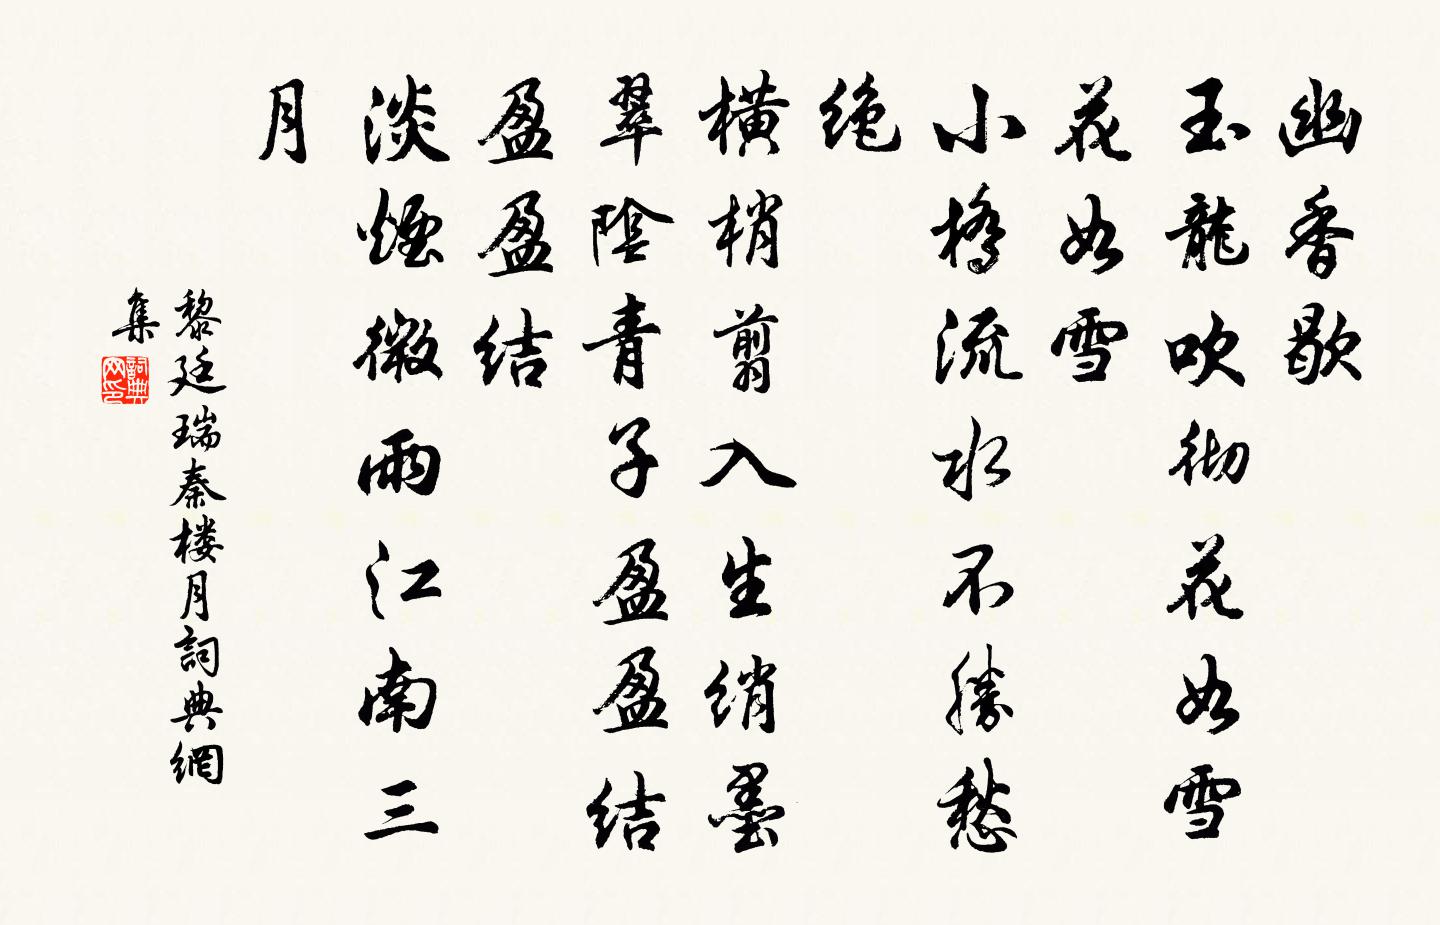 幽香歇
玉龍吹彻花如雪
花如雪
小橋流水不勝愁
绝
横梢剪入生绡墨
翠陰青子盈盈结
盈盈结
淡煙微雨江南三
月
黎廷瑞秦楼月詞典網
集
詞典
网印